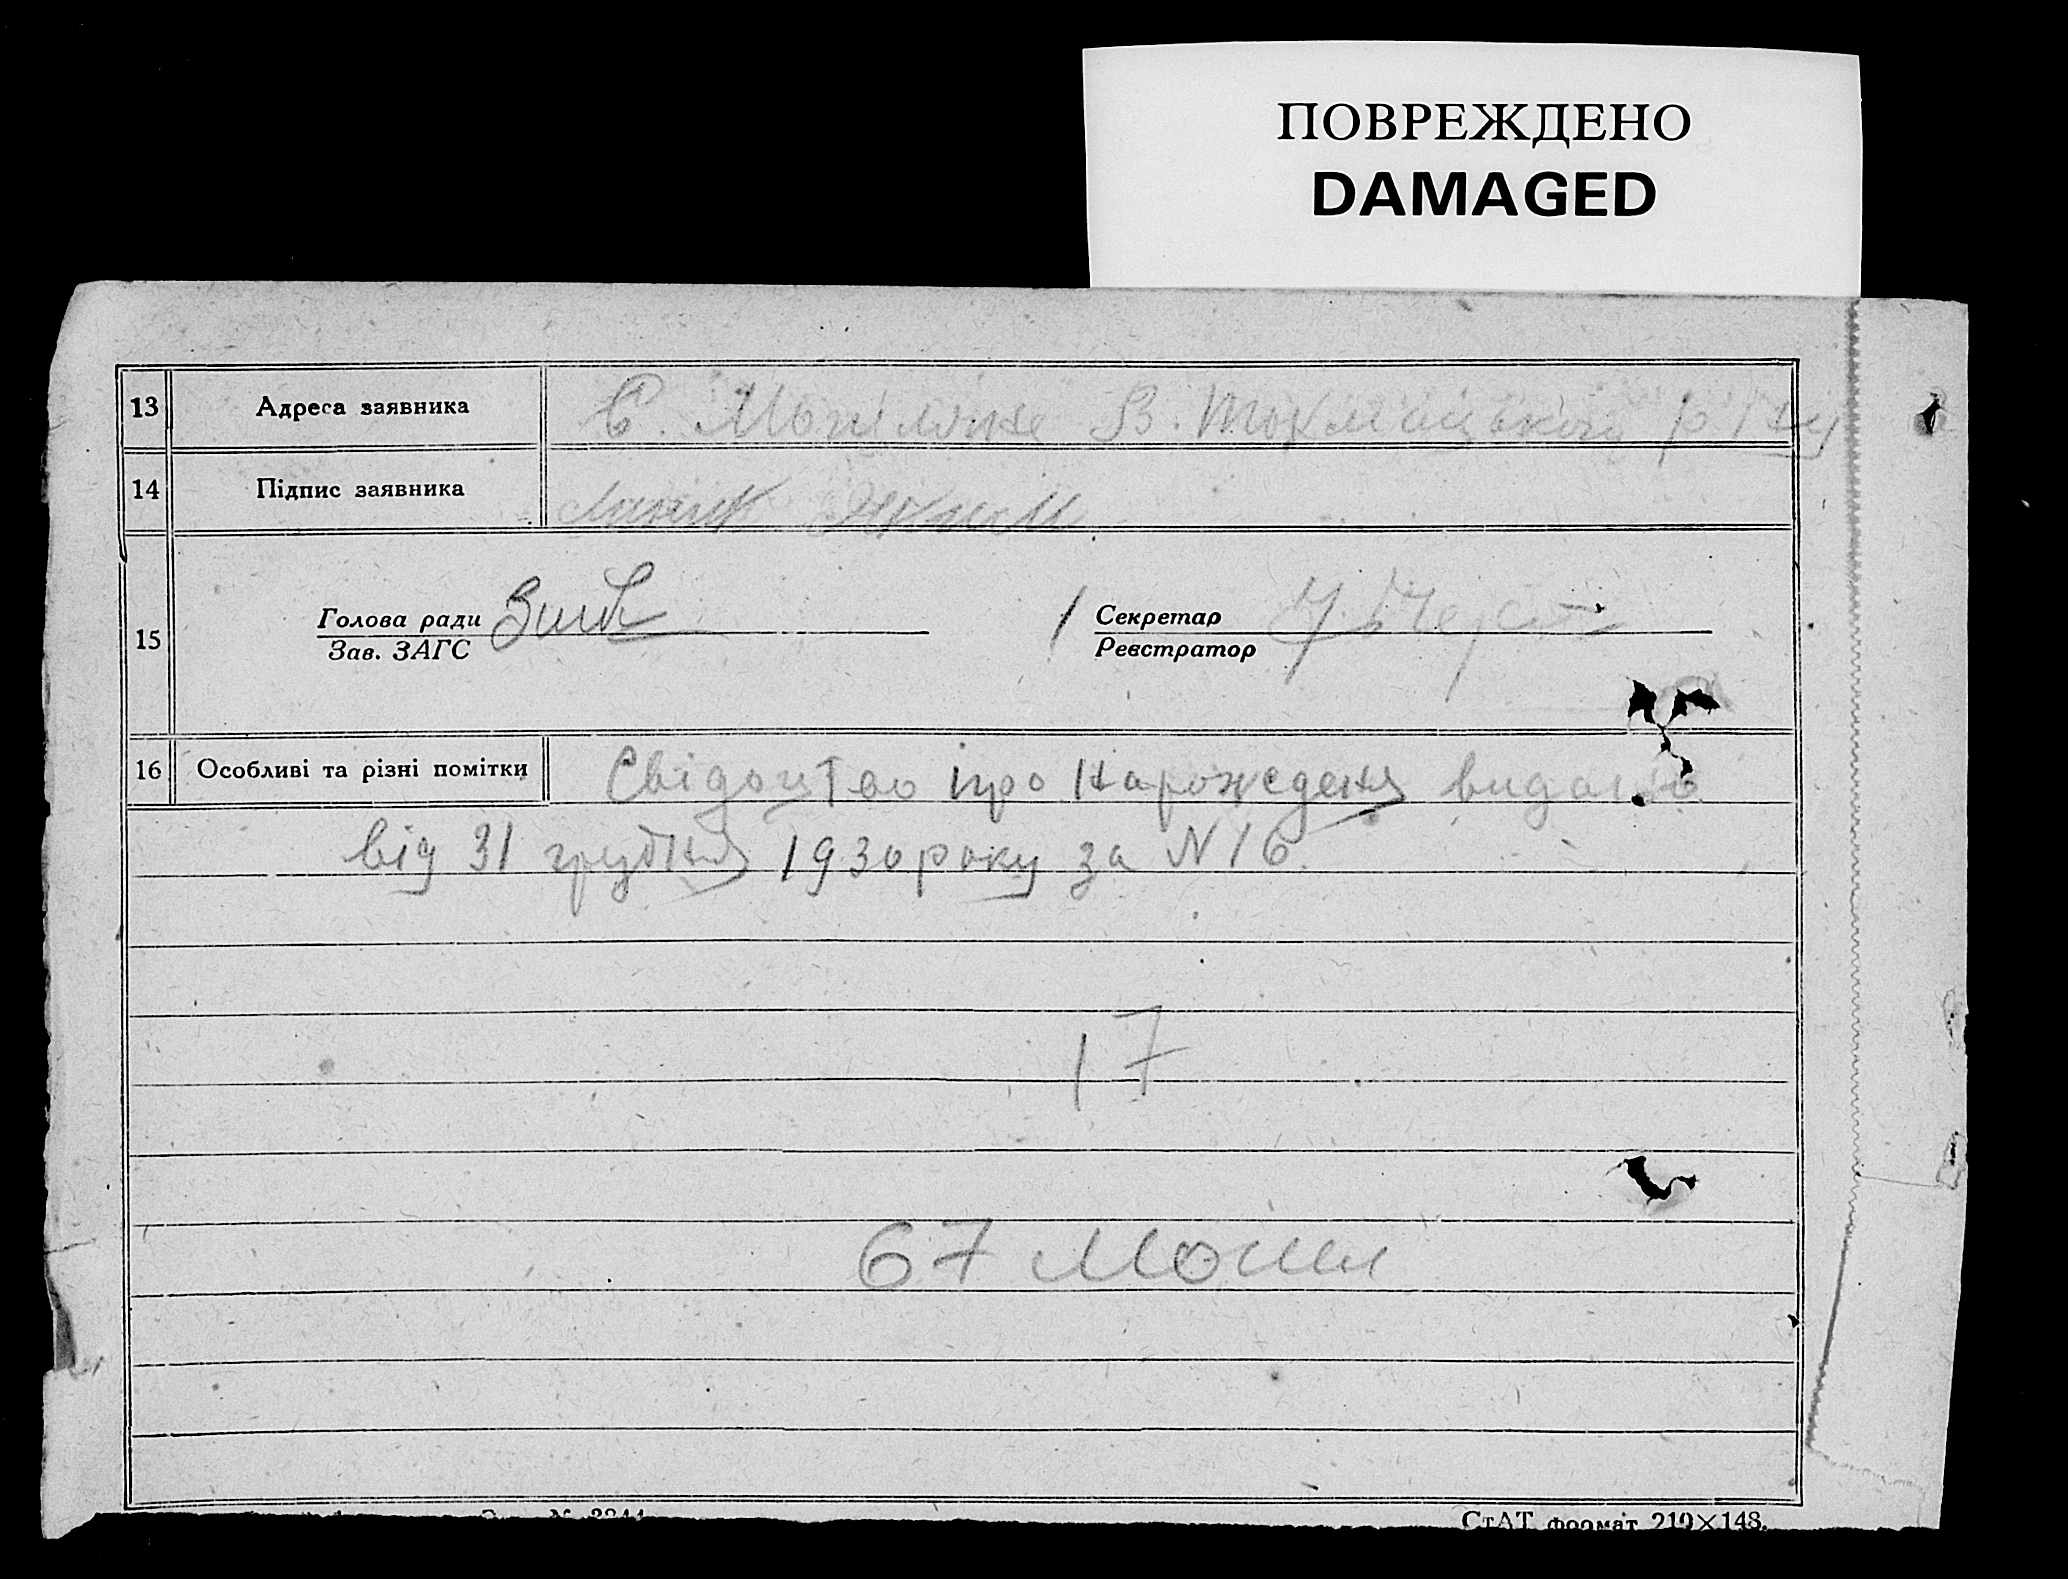 ПОВРЕЖДЕНО
DAMAGED
13 Адреса заявника С. Могиляне В. Токмацького р-ну
14 Підпис заявника
15 Голова ради Секретар
Зав. ЗАГС Реєстратор
16 Особливі та різні помітки Свідоцтво про нарожедення видано
від 31 грудня 1930 року за N 16.
17
67
№ 3244
СтАТ формат 210×148.